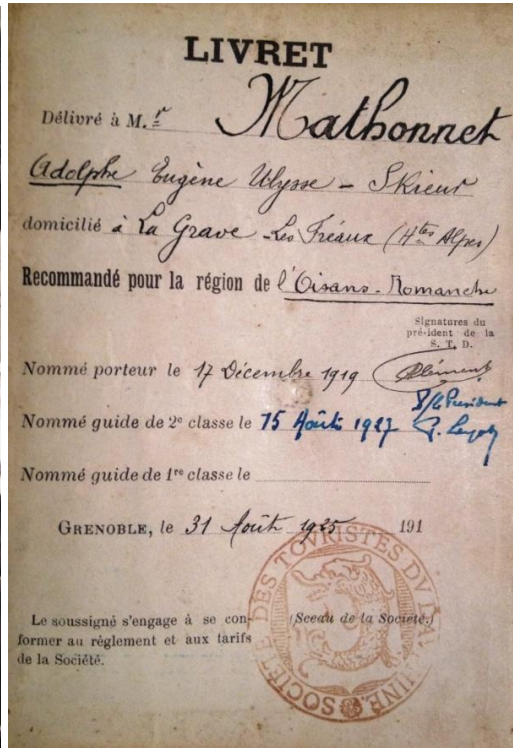 LIVRET
Délivré à M.r Mathonnet
Adolphe Eugène Ulysse - Skieur
domicilié à La Grave - Les Fréaux (Htes Alpes)
Recommandé pour la région de l'Oisans - Romanche
Signatures du
pré-ident de la
S. T. D.
Nommé porteur le 17 Décembre 1919 Clément
P/le President
Nommé guide de 2e classe le 15 Août 1927
Nommé guide de 1re classe le
GRENOBLE, le 31 Août 1925 191
Le soussigné s'engage à se con-
former au règlement et aux tarifs
de la Société.
(Sceau de la Société.)
SOCIETE DES TOVRISTES DV DAVPHINE